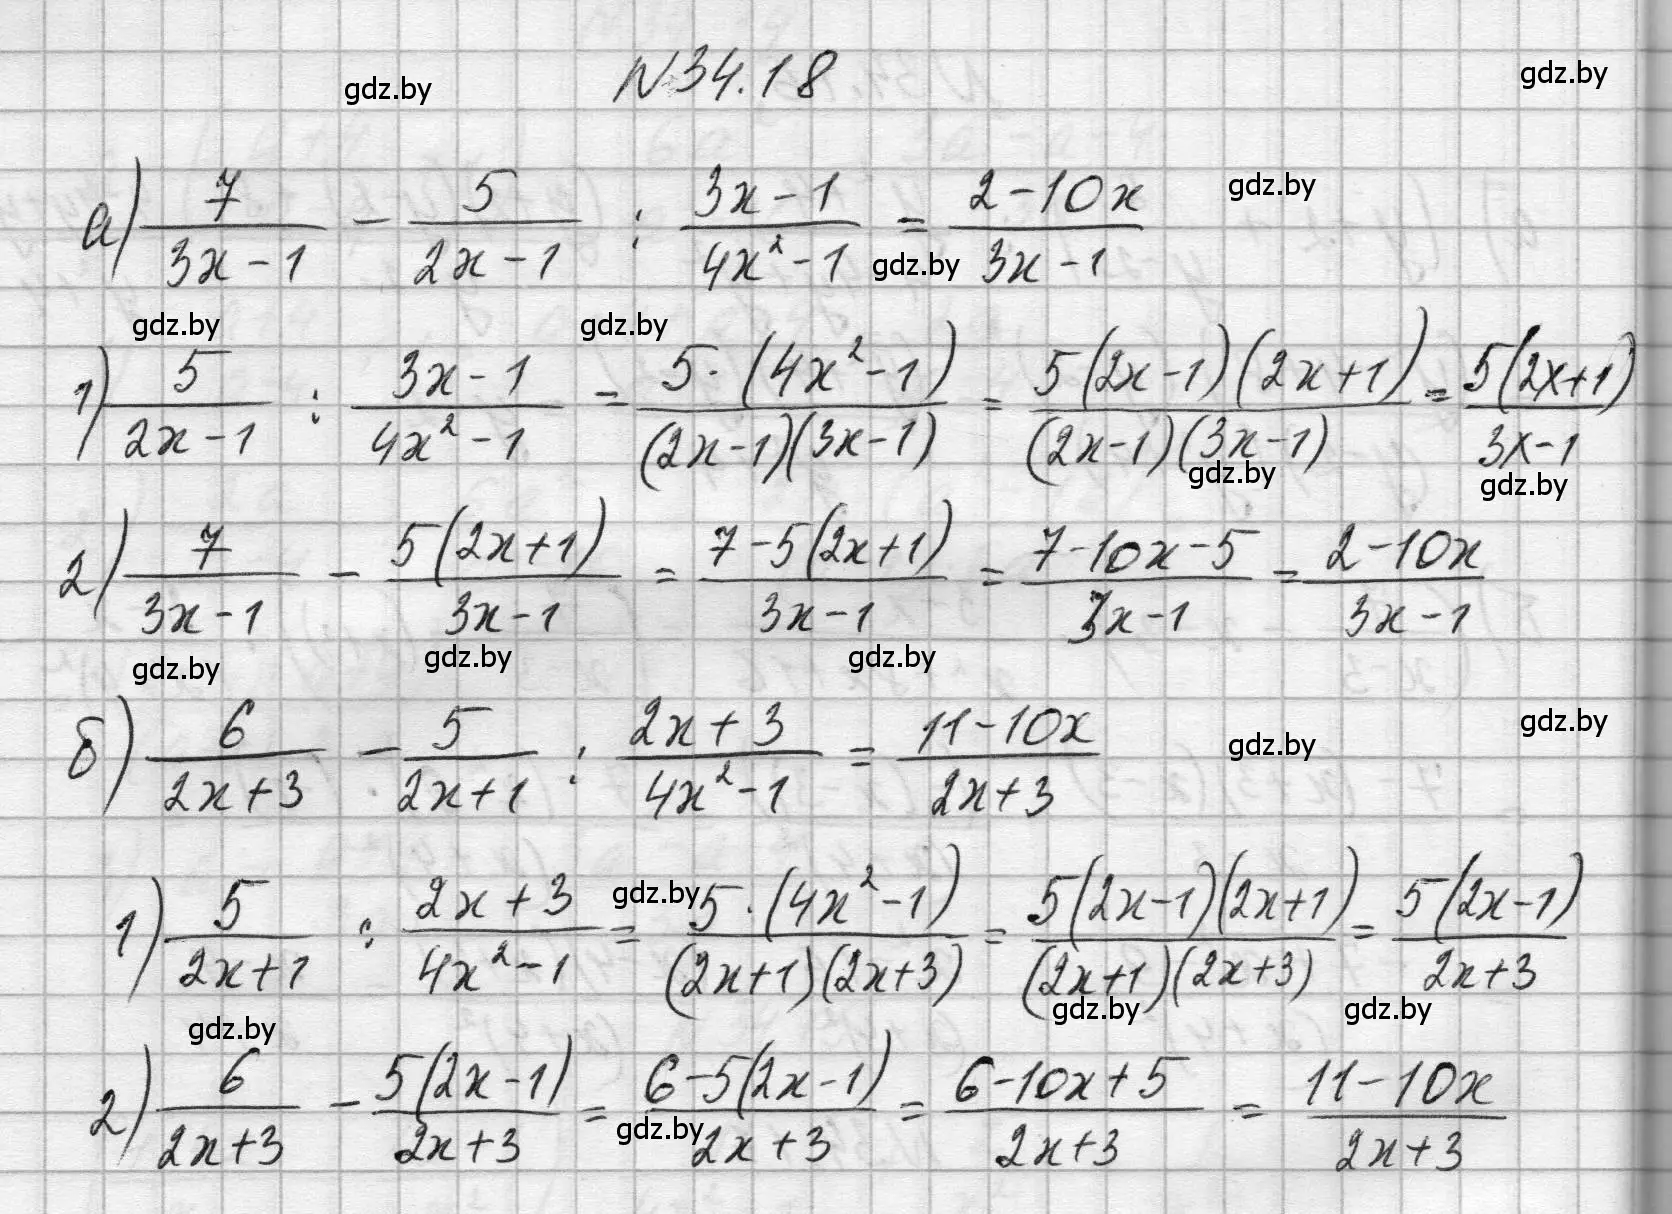 gdz.by №34.18 gdz.by
а) 7/(3x-1) - 5/(2x-1) : (3x-1)/(4x²-1) = (2-10x)/(3x-1) gdz.by gdz.by
gdz.by gdz.by
1) 5/(2x-1) : (3x-1)/(4x²-1) = 5·(4x²-1)/((2x-1)(3x-1)) = 5(2x-1)(2x+1)/((2x-1)(3x-1)) = 5(2x+1)/(3x-1)
gdz.by gdz.by
2) 7/(3x-1) - 5(2x+1)/(3x-1) = (7-5(2x+1))/(3x-1) = (7-10x-5)/(3x-1) = (2-10x)/(3x-1)
gdz.by gdz.by gdz.by
б) 6/(2x+3) - 5/(2x+1) : (2x+3)/(4x²-1) = (11-10x)/(2x+3) gdz.by gdz.by
1) 5/(2x+1) : (2x+3)/(4x²-1) = 5·(4x²-1)/((2x+1)(2x+3)) = 5(2x-1)(2x+1)/((2x+1)(2x+3)) = 5(2x-1)/(2x+3) gdz.by
gdz.by gdz.by gdz.by
2) 6/(2x+3) - 5(2x-1)/(2x+3) = (6-5(2x-1))/(2x+3) = (6-10x+5)/(2x+3) = (11-10x)/(2x+3)
gdz.by